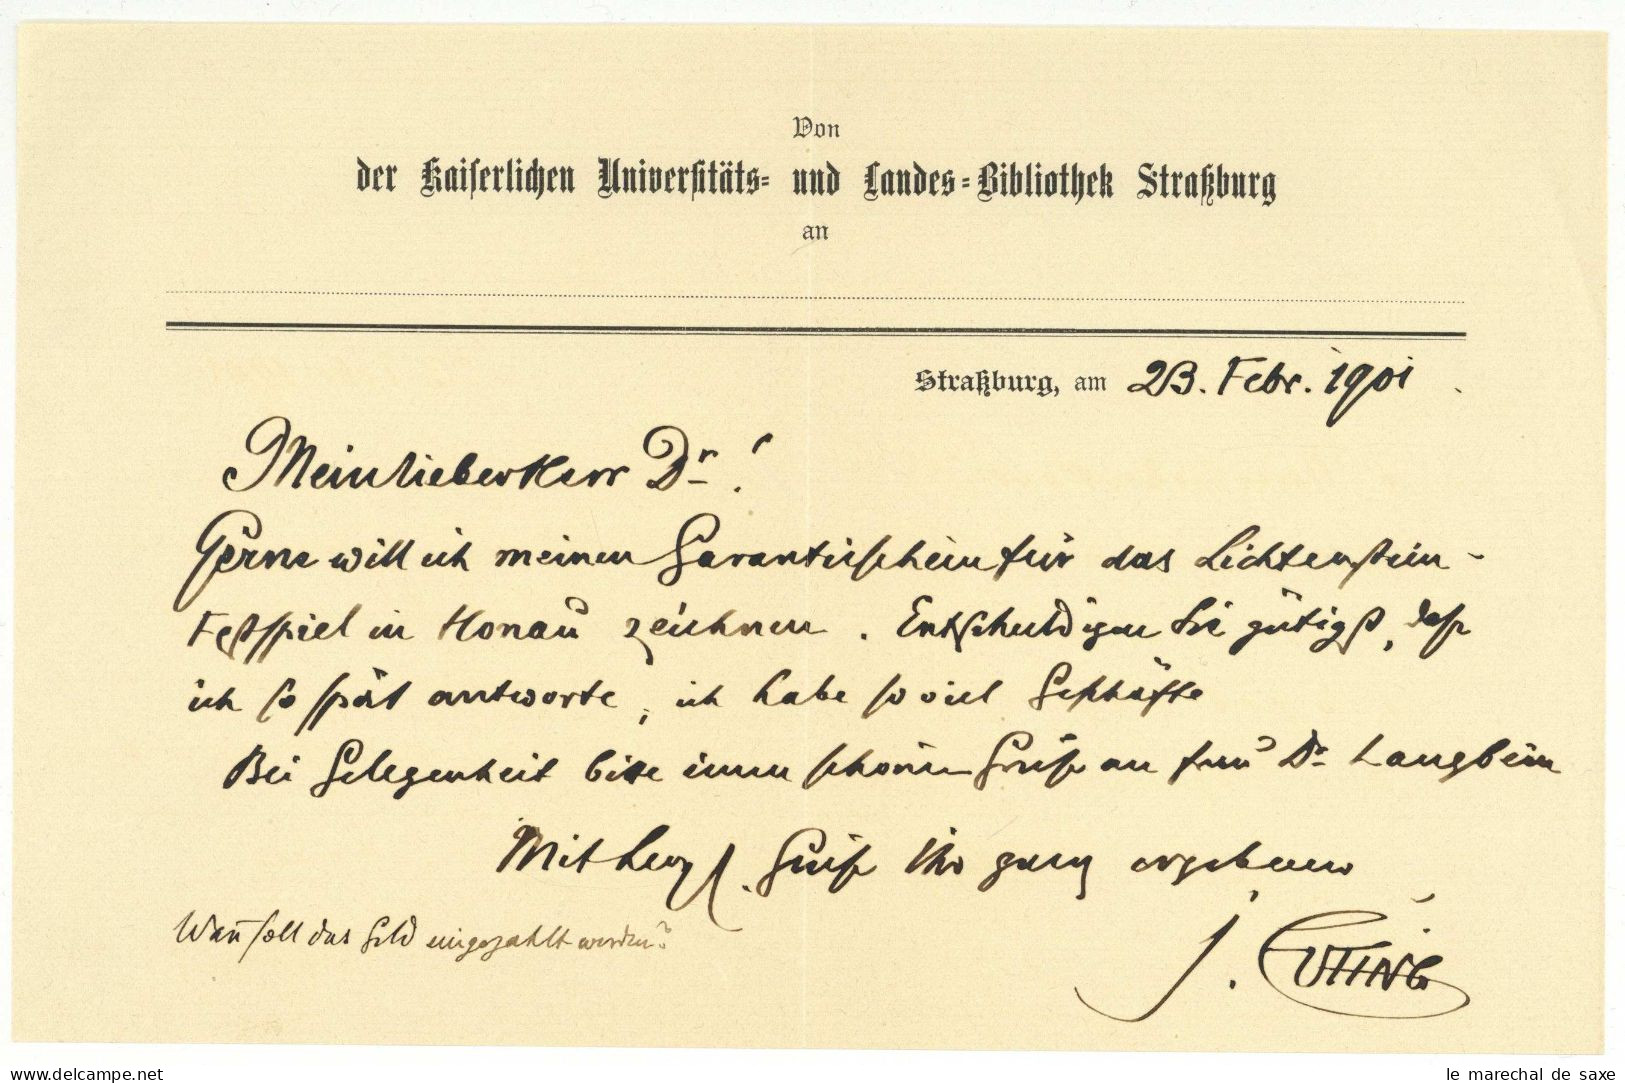 Von
der Kaiserlichen Universitäts- und Landes-Bibliothek Straßburg
an
Straßburg, am 23. Febr. 1901
Mein lieber Herr Dr.!
Gerne will ich meinen Garantieschein für das Lichtenstein-
Festspiel in Honau zeichnen. Entschuldigen Sie gütigst, dass
ich so spät antworte, ich habe so viel Geschäfte
Bei Gelegenheit bitte einen schönen Gruß an Frau Dr. Langbein
Mit herzl. Gruß Ihr ganz ergebener
J. EUTING
Wann soll das Geld eingezahlt werden?
www.delcampe.net
le marechal de saxe